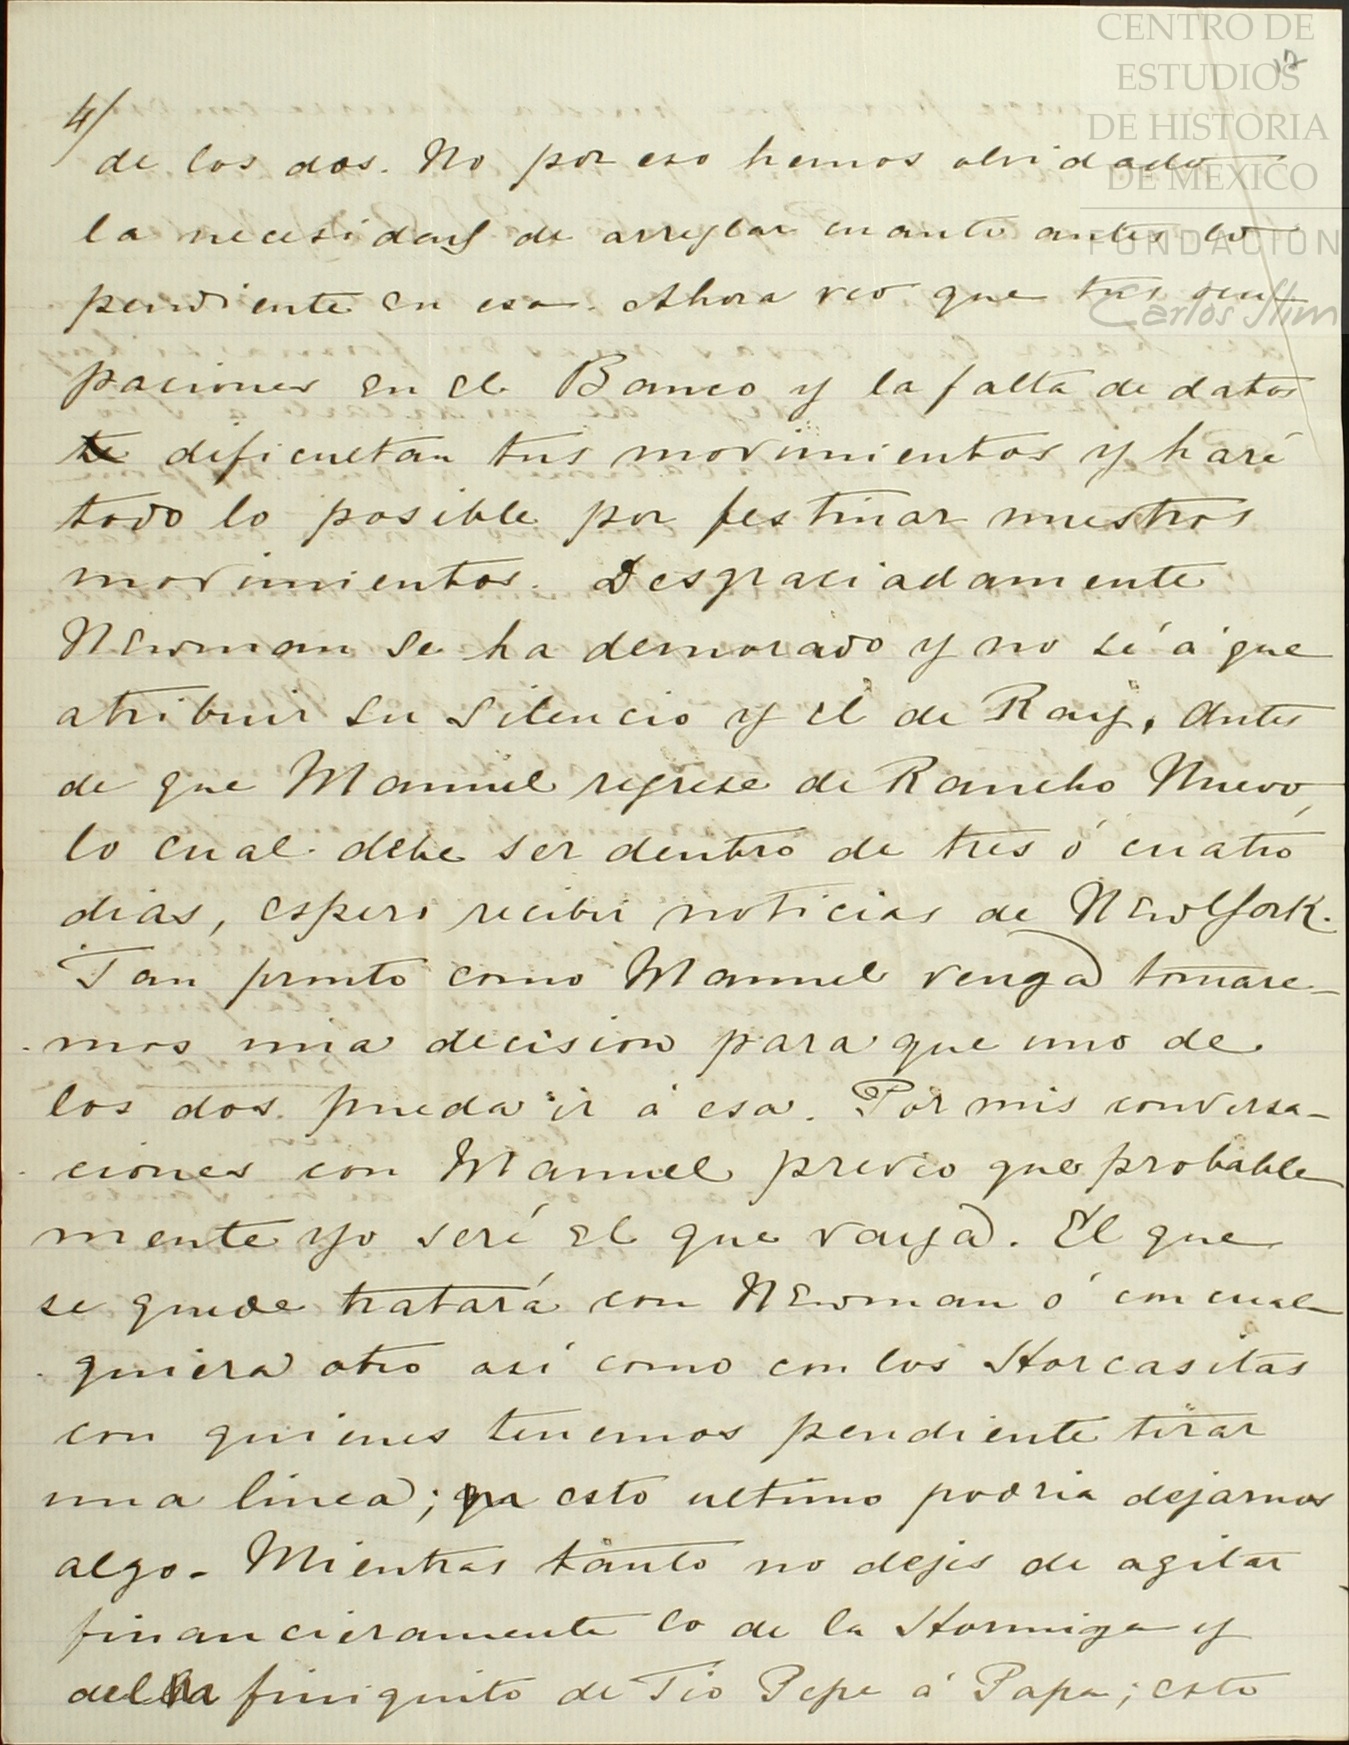 CENTRO DE
ESTUDIOS
DE HISTORIA
DE MEXICO
FUNDACIÓN
Carlos Slim
17
4/
de los dos. No por eso hemos olvidado
la necesidad de arreglar cuanto antes lo
pendiente en esa. Ahora veo que tus ocu
paciones en el Banco y la falta de datos
te dificultan tus movimientos y haré
todo lo posible por festinar nuestros
movimientos. Desgraciadamente
Newman se ha demorado y no sé á que
atribuir su silencio y el de Ray. Antes
de que Manuel regrese de Rancho Nuevo,
lo cual debe ser dentro de tres ó cuatro
dias, espero recibir noticias de New York.
Tan pronto como Manuel venga tomare-
mos una decision para que uno de
los dos pueda ir á esa. Por mis conversa-
ciones con Manuel preveo que probable
mente yo seré el que vaya. El que
se quede tratará con Newman ó con cual
quiera otro así como con los Horcasitas
con quienes tenemos pendiente tirar
una linea; esto ultimo podria dejarnos
algo. Mientras tanto no dejes de agitar
financieramente lo de la Hormiga y
del finiquito de Tio Pepe á Papa; esto